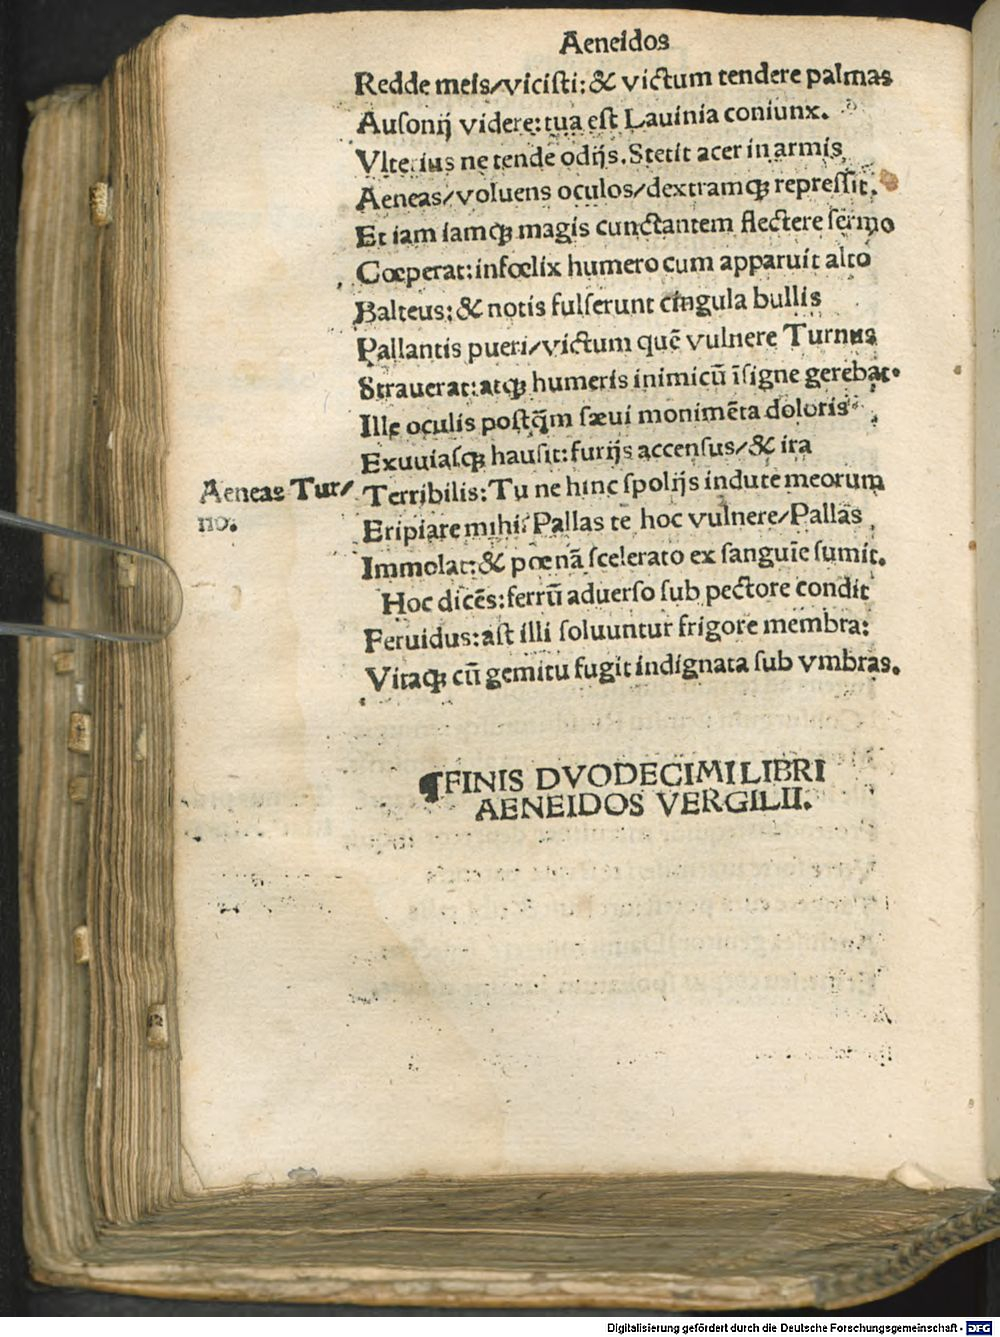 Aeneidos
Redde meis/viciſti: & victum tendere palmas
Auſonij videre: tua eſt Lauinia coniunx.
Vlterius ne tende odijs. Stetit acer in armis
Aeneas/voluens oculos/dextramqꝫ repreſſit.
Et iam iamqꝫ magis cunctantem flectere ſermo
Cœperat: infœlix humero cum apparuit alto
Balteus: & notis fulſerunt cingula bullis
Pallantis pueri/victum quē vulnere Turnus
Strauerat: atqꝫ humeris inimicū īſigne gerebat.
Ille oculis poſtq̄m ſæui monimēta doloris
Exuuiaſqꝫ hauſit: furijs accenſus/& ira
Aeneas Tur/
no.
Terribilis: Tu ne hinc ſpolijs indute meorum
Eripiare mihi? Pallas te hoc vulnere/Pallas
Immolat: & pœnā ſcelerato ex ſanguīe ſumit.
Hoc dicēs: ferrū aduerſo ſub pectore condit
Feruidus: aſt illi ſoluuntur frigore membra:
Vitaqꝫ cū gemitu fugit indignata ſub vmbras.
¶FINIS DVODECIMI LIBRI
AENEIDOS VERGILII.
Digitalisierung gefördert durch die Deutsche Forschungsgemeinschaft - DFG